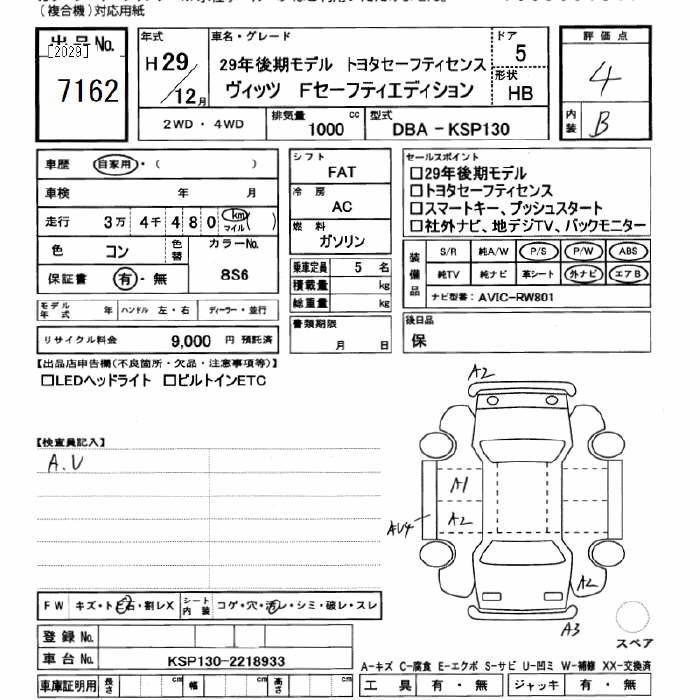 (複合機)対応用紙
出品No.
[2029]
7162
年式
H29
12月
車名・グレード
29年後期モデル トヨタセーフティセンス
ヴィッツ Fセーフティエディション
ドア
5
形状
HB
2WD・4WD
排気量
1000
cc
型式
DBA-KSP130
評価点
4
内装
B
車歴 自家用・( )
車検 年 月
走行 3万 4千 4 8 0 (km マイル)
色 コン 色替 カラーNo.
8S6
保証書 有・無
モデル年式 年 ハンドル 左・右 ディーラー・並行
リサイクル料金 9,000 円 預託済
シフト
FAT
冷房
AC
燃料
ガソリン
乗車定員 5 名
積載量 kg
総重量 kg
書類期限
月 日
セールスポイント
□29年後期モデル
□トヨタセーフティセンス
□スマートキー、プッシュスタート
□社外ナビ、地デジTV、バックモニター
装備品
S/R 純A/W P/S P/W ABS
純TV 純ナビ 革シート 外ナビ エアB
ナビ型番: AVIC-RW801
後日品
保
【出品店申告欄(不良箇所・欠品・注意事項等)】
□LEDヘッドライト □ビルトインETC
【検査員記入】
A.U
A2
A1
A2
AU4
A2
A3
スペア
FW キズ・トビ石・割レX シート内装 コゲ・穴・汚レ・シミ・破レ・スレ
登録No.
車台No. KSP130-2218933
A-キズ C-腐食 E-エクボ S-サビ U-凹ミ W-補修 XX-交換済
車庫証明用 長さ cm 幅 cm 高さ cm
工具 有・無 ジャッキ 有・無